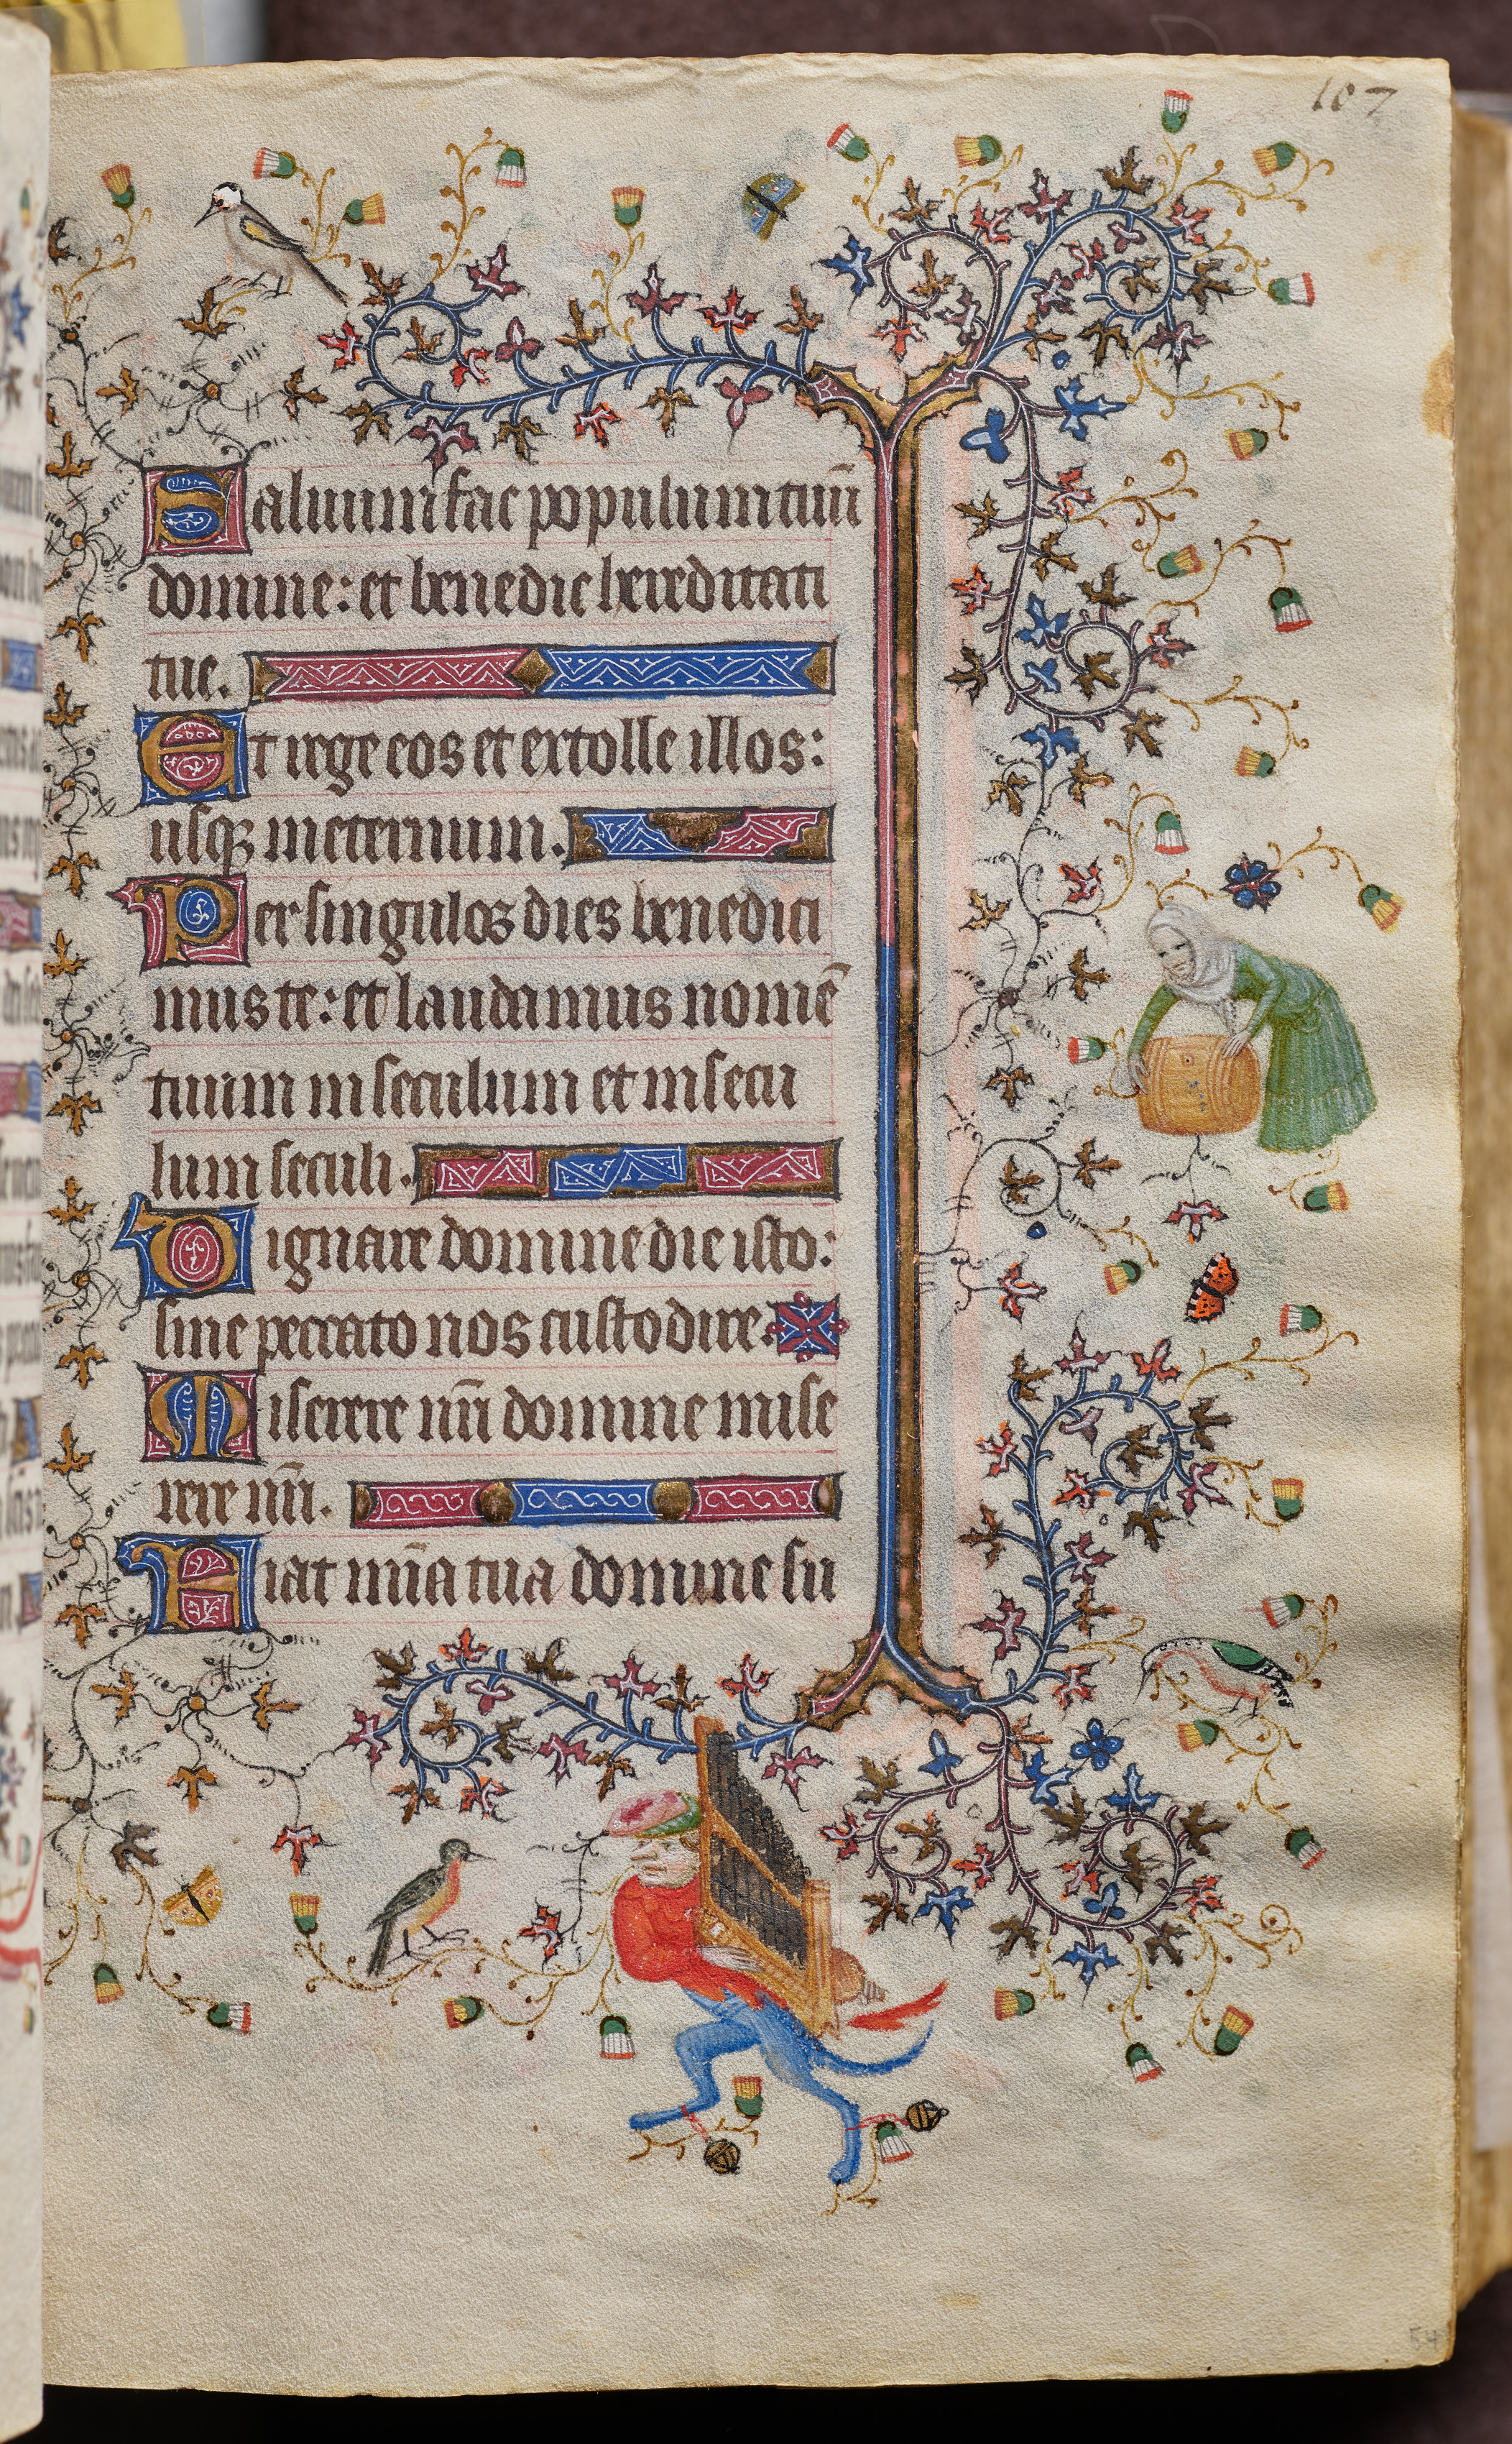 107
Saluum fac populum tuū
domine: et benedic hereditati
tue.
Et rege eos et extolle illos:
usqꝫ in eternum.
Per singulos dies benedici
mus te: et laudamus nomē
tuum in seculum et in secu
lum seculi.
Dignare domine die isto:
sine peccato nos custodire.
Miserere nr̄i domine mise
rere nr̄i.
Fiat mīa tua domine su
54